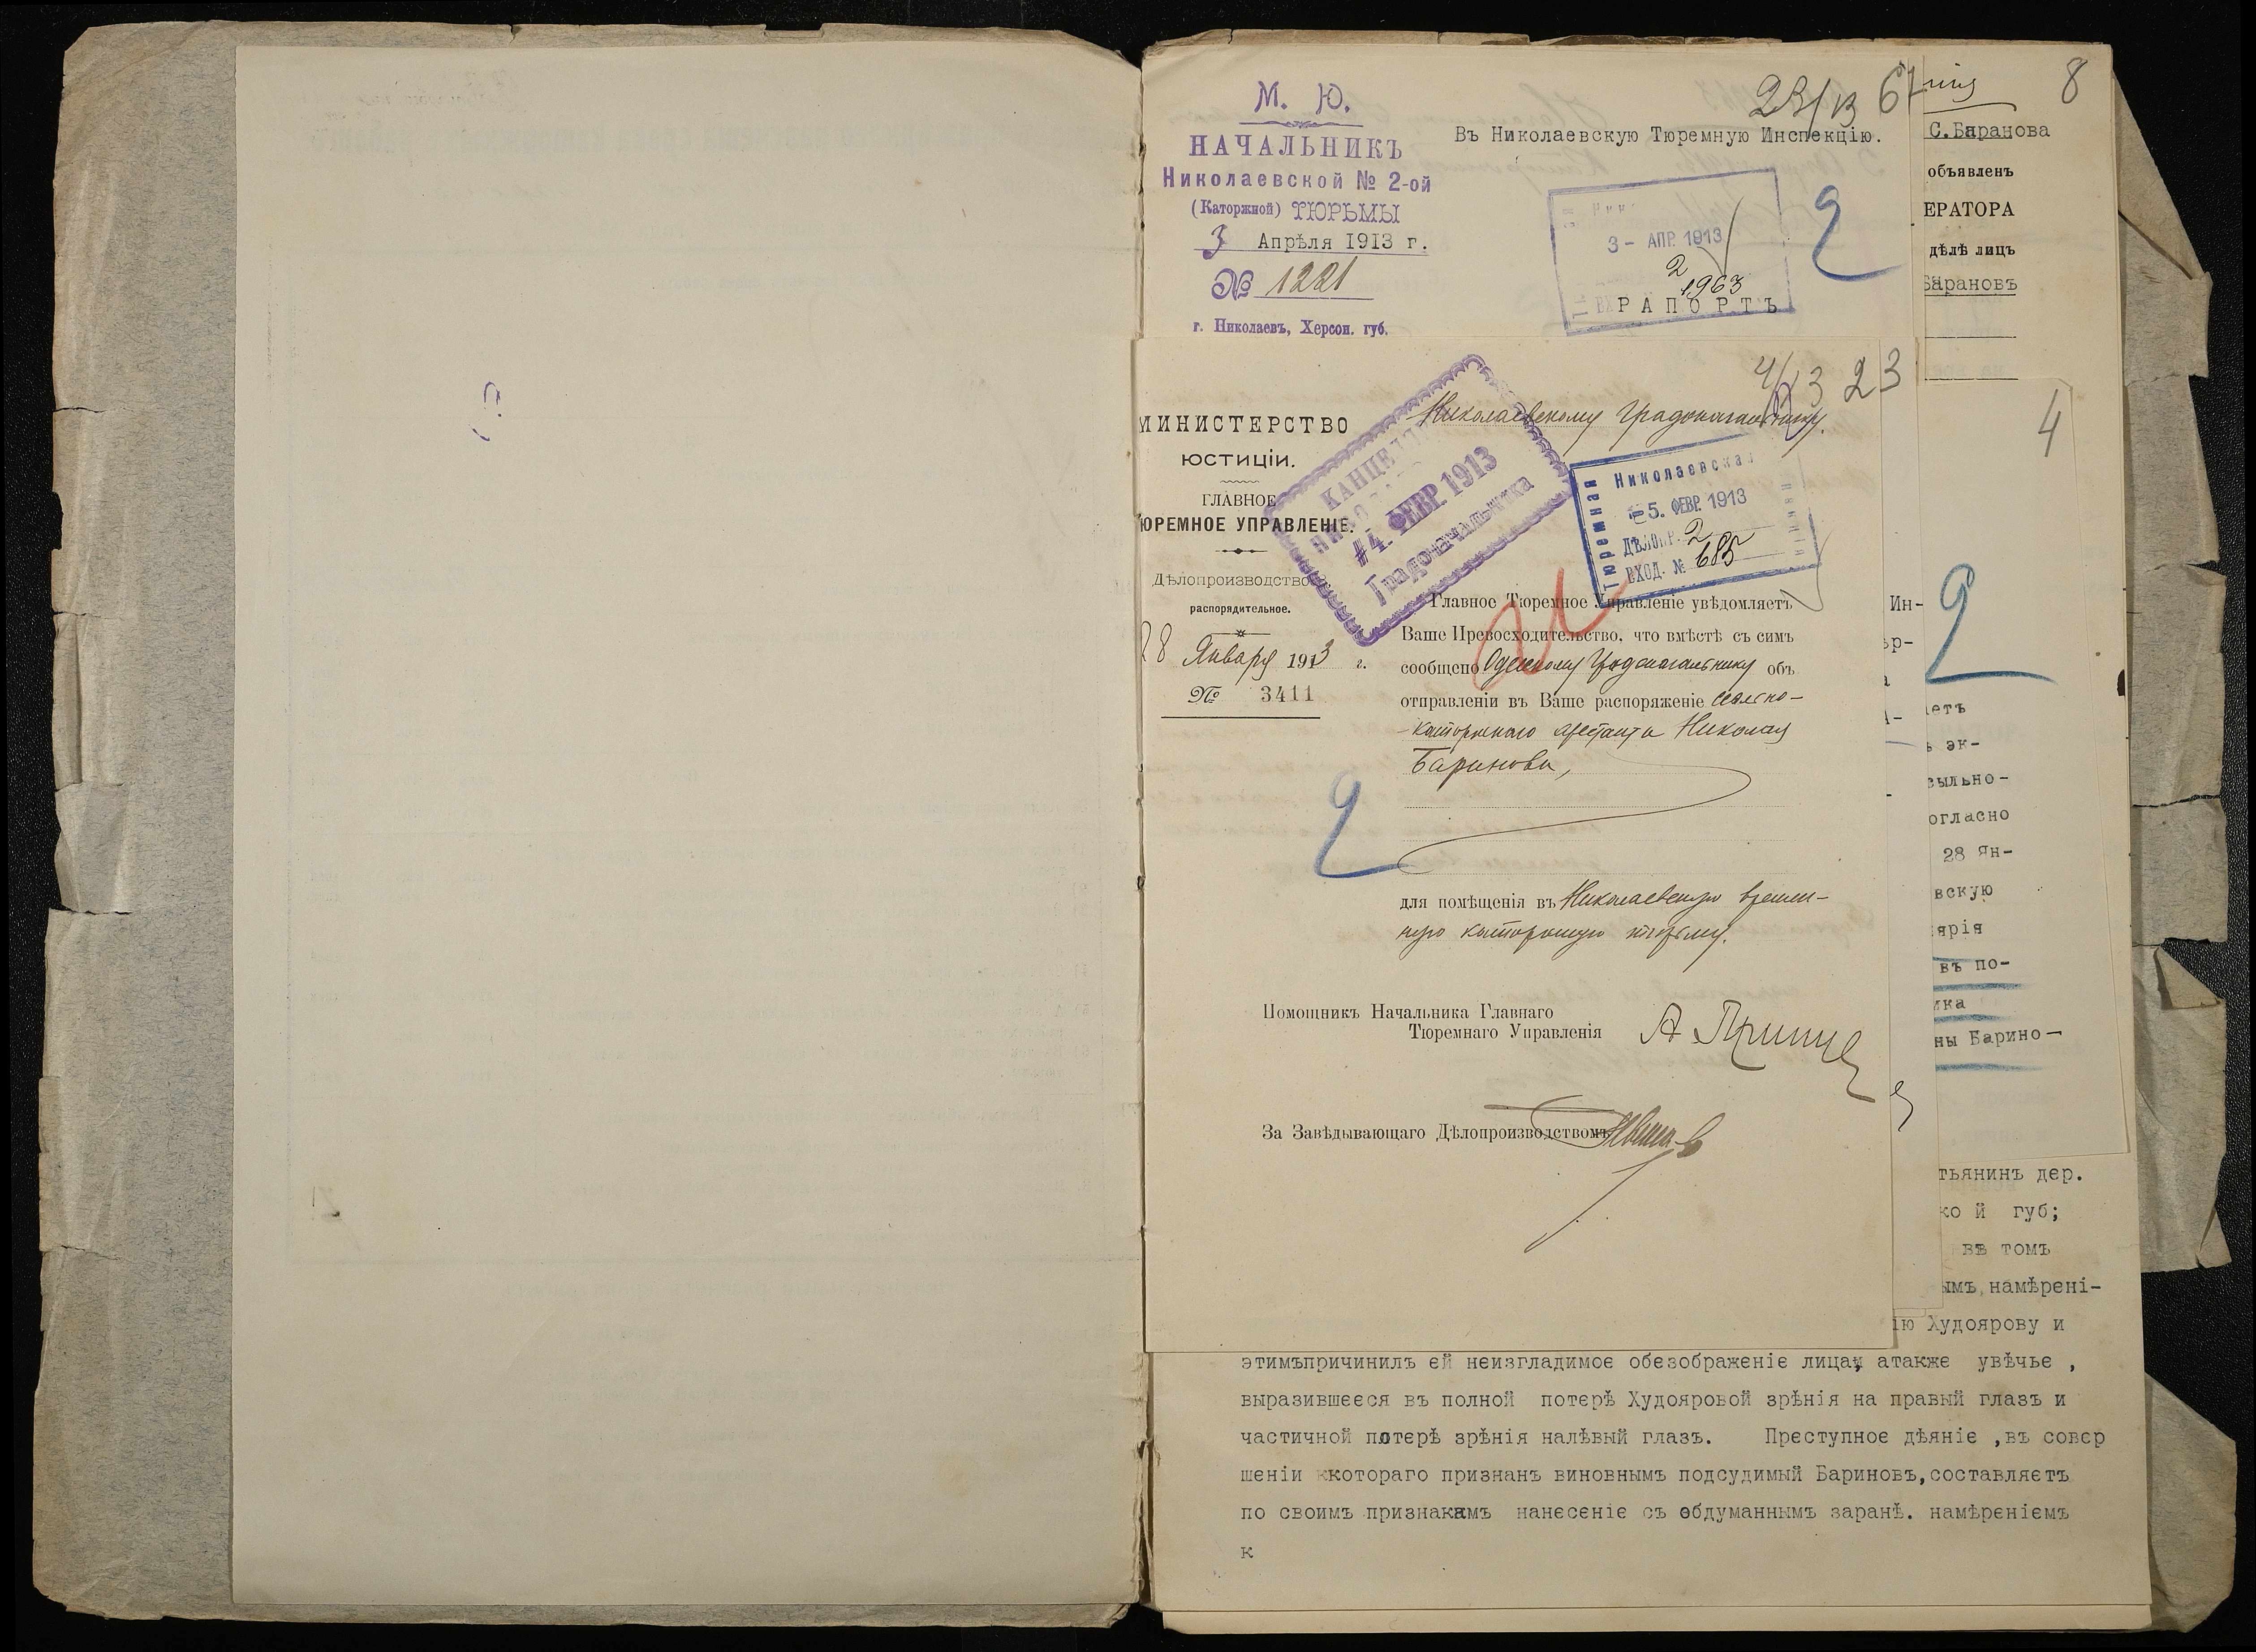 М. Ю.
НАЧАЛЬНИКЪ
Николаевской № 2-ой
(Каторжной) ТЮРЬМЫ
3 Апрѣля 1913 г.
№ 1221
г. Николаевъ, Херсон. губ.
Въ Николаевскую Тюремную Инспекцію.
3 - АПР. 1913
2
1963
РАПОРТЪ
2
8
С.Баранова
объявленъ
ЕРАТОРА
дѣлѣ лицъ
Барановъ
4
23
МИНИСТЕРСТВО
ЮСТИЦІИ.
ГЛАВНОЕ
ЮРЕМНОЕ УПРАВЛЕНІЕ.
Дѣлопроизводство
распорядительное.
28 Января 1913 г.
№ 3411
Николаевскому Градоначальнику.
4. ФЕВР. 1913
Градоначальника
Николаевская
Тюремная
5. ФЕВР. 1913
ДѢЛОПР. 2
ВХОД. № 685
Главное Тюремное Управленіе увѣдомляетъ
Ваше Превосходительство, что вмѣстѣ съ симъ
сообщено Одесскому Градоначальнику объ
отправленіи въ Ваше распоряженіе ссыльно-
каторжнаго арестанта Николая
Баринова,
2
для помѣщенія въ Николаевскую времен-
ную каторжную тюрьму.
Помощникъ Начальника Главнаго
Тюремнаго Управленія
За Завѣдывающаго Дѣлопроизводствомъ
2
Ин-
ър-
етъ
ъ эк-
сыльно-
огласно
28 Ян-
вскую
ярія
въ по-
ика
ны Барино-
тьянинъ дер.
ко й губ;
въ томъ
ымъ намѣрені-
ію Худоярову и
этимъпричинилъ ей неизгладимое обезображеніе лица, атакже увѣчье ,
выразившееся въ полной потерѣ Худояровой зрѣнія на правый глазъ и
частичной потерѣ зрѣнія налѣвый глазъ. Преступное дѣяніе ,въ совер
шеніи ккотораго признанъ виновнымъ подсудимый Бариновъ,составляетъ
по своимъ признакамъ нанесеніе съ обдуманнымъ заранѣ. намѣреніемъ
к